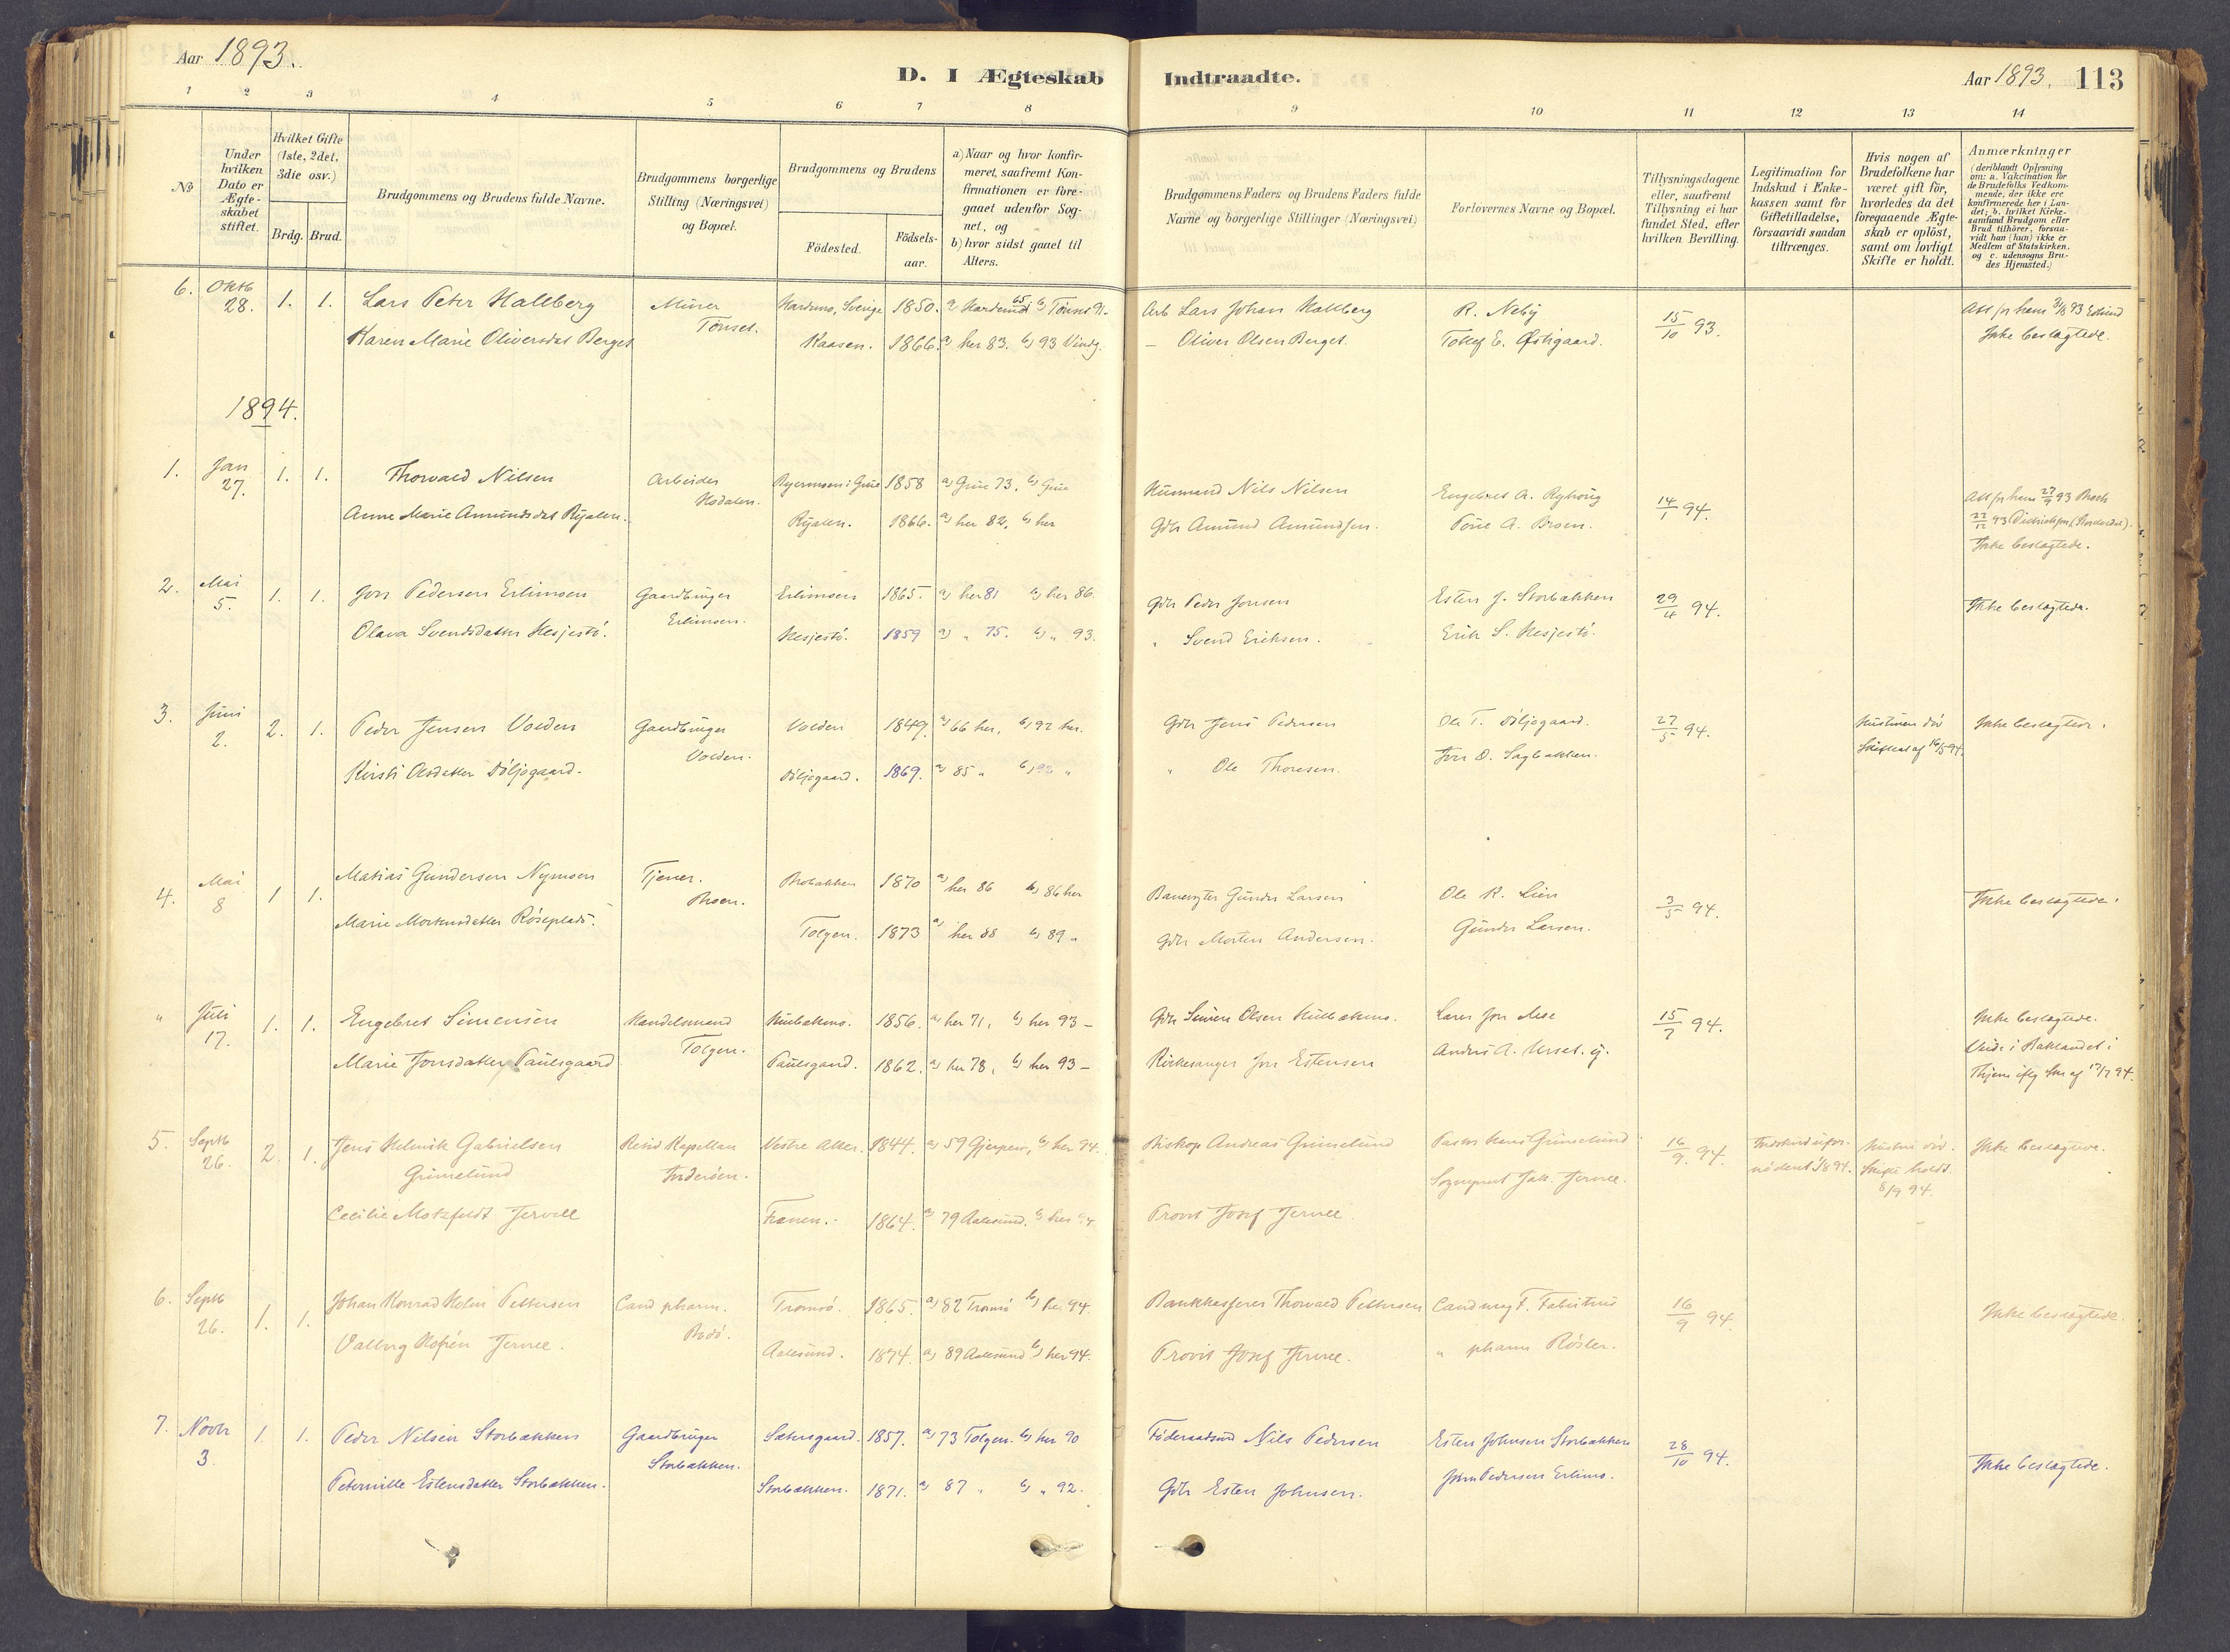 Aar 1893.
D. I Ægteskab Indtraadte.
Aar 1893. 113
1 2 3 4 5 6 7 8 9 10 11 12 13 14
№
Under hvilken Dato er Ægteskabet stiftet.
Hvilket Gifte (1ste, 2det, 3die osv.)
Brdg. Brud.
Brudgommens og Brudens fulde Navne.
Brudgommens borgerlige Stilling (Næringsvei) og Bopæl.
Brudgommens og Brudens
Födested.
Födselsaar.
a) Naar og hvor konfirmeret, saafremt Konfirmationen er foregaaet udenfor Sognet, og
b) hvor sidst gaaet til Alters.
Brudgommens Faders og Brudens Faders fulde Navne og borgerlige Stillinger (Næringsvei)
Forlovernes Navne og Bopæl.
Tillysningsdagene eller, saafremt Tillysning ei har fundet Sted, efter hvilken Bevilling.
Legitimation for Indskud i Enkekassen samt for Giftetilladelse, forsaavidt saadan tiltrænges.
Hvis nogen af Brudefolkene har været gift för, hvorledes da det foregaaende Ægteskab er oplöst, samt om lovligt Skifte er holdt.
Anmærkninger
(deriblandt Oplysning om: a. Vakcination for de Brudefolks Vedkommende, der ikke ere konfirmerede her i Landet; b. hvilket Kirkesamfund Brudgom eller Brud tilhörer, forsaavidt han (hun) ikke er Medlem af Statskirken, og c. udensogns Brudes Hjemsted.)
6. Oktb 28. 1. 1. Lars Peter Hallberg Murer Tönset. Sverige 1850. b) Tönset 91. Arb Lars Johan Hallberg R. Neby 15/10 93.
Karen Marie Oliversdat Berget Kaasen. 1866. a) her 83. b) 93 Oliver Olsen Berget. E. Østigaard. Ikke beslægtede.
1894.
1. Jan 27. 1. 1. Thorvald Nilsen Arbeider Hodalen. 1858 a) Grue 73. b) Grue Husmand Nils Nilsen Engebret A. Ryhoug 14/1 94.
Anne Marie Amundsdat Ryalen. Ryalen. 1866. a) her 82, b) her Gdbr Amund Amundsen. A. Broen. Ikke beslægtede.
2. Mai 5. 1. 1. Jon Pedersen Erlimoen Gaardbruger Erlimoen. Erlimoen 1865. a) her 81 b) her 86. Gdbr Peder Jonsen Esten J. Storbækken 29/4 94. Ikke beslægtede.
Olava Svendsdatter Hesjestö. Hesjestö. 1859 a) " 75. b) " 93. " Svend Eriksen. Erik S. Hesjestö.
3. Juni 2. 2. 1. Peder Jensen Volden Gaardbruger Volden. Volden 1849. a) 66 her, b) 92 her. Gdbr Jens Pedersen Ole T. Döljegaard. 27/5 94. Hustruen död Ikke beslægtede.
Kirsti Olsdatter Döljegaard. Döljegaard. 1869. a) 85 " b) 92 " " Ole Thoresen. Jon O. Sagbakken.
4. Mai 8 1 1. Matias Gundersen Nymoen Tjener. Moen. 1870 a) her 86 b) 86 her Gunder Larsen Ole K. Lien 3/5 94. Ikke beslægtede.
Marie Mortensdatter Röseplads. Tolgen. 1873 a) her 88 b) 89 " Gdbr Morten Andersen. Gunder Larsen.
" Juli 17. 1. 1. Engebret Simensen Handelsmand Tolgen. 1856. a) her 71, b) her 93 – Gdbr Simen Olsen Lærer Jon Moe 15/7 94. Ikke beslægtede.
Marie Jonsdatter Paulsgaard Paulsgaard. 1862. a) her 78, b) her 93 – Kirkesanger Jon Estensen Anders A. Urset.
5. Septb 26. 2. 1. Jens Henrik Gabrielsen Grimelund Resid Kapellan Inderöen. Vestre Aker. 1844. a) 59 Gjerpen, b) her 94. Biskop Andreas Grimelund Pastor Hans Grimelund 16/9 94. Hustru död. Skifte holdt 8/9 94. Ikke beslægtede.
Cecilie Motzfeldt Jervell Frænen. 1864. a) 79 Aalesund. b) her 94 Provst Josef Jervell. Sogneprest Jak. Jervell.
6. Septb 26. 1. 1. Johan Konrad Holm Pettersen Cand pharm. Bodö. Tromsö. 1865. a) 82 Tromsö b) her 94. Bankkasserer Thorvald Pettersen Cand mag F. Fabritius 16/9 94. Ikke beslægtede.
Valborg Jervell. Aalesund. 1874. a) 89 Aalesund b) her 94. Provst Josef Jervell. " pharm Rösler.
7. Novbr 3. 1. 1. Peder Nilsen Storbækken Gaardbruger Storbækken. Sætersgaard. 1857. a) 73 Tolgen. b) her 90 Föderaadsmd Nils Pedersen Esten Johnsen Storbækken 28/10 94. Ikke beslægtede.
Pernille Estensdatter Storbækken. Storbækken. 1871. a) 87 " b) " 92. Gdbr Esten Johnsen. John Pedersen Erlimo.